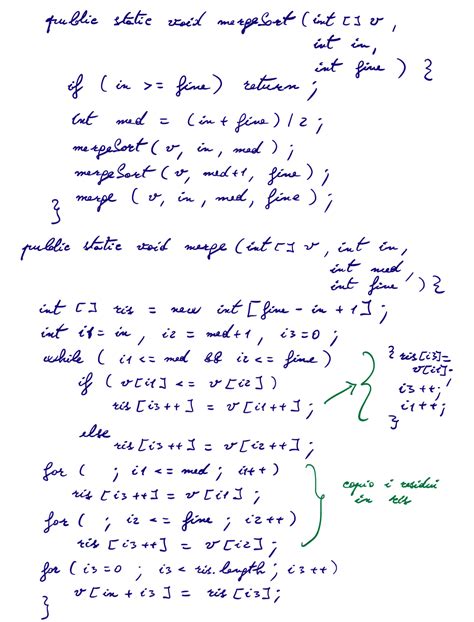 public static void mergeSort (int [] v,
int in,
int fine) {
if (in >= fine) return;
int med = (in + fine) / 2;
mergeSort (v, in, med);
mergeSort (v, med+1, fine);
merge (v, in, med, fine);
}
public static void merge (int [] v, int in,
int med,
int fine) {
int [] ris = new int [fine - in + 1];
int i1 = in, i2 = med+1, i3 = 0;
while (i1 <= med && i2 <= fine)
if (v[i1] <= v[i2])
ris [i3++] = v[i1++];
else
ris [i3++] = v[i2++];
{ ris[i3] =
v[i1];
i3++;
i1++;
}
for ( ; i1 <= med; i1++)
ris [i3++] = v[i1];
for ( ; i2 <= fine; i2++)
ris [i3++] = v[i2];
copio i residui
in ris
for (i3=0; i3 < ris.length; i3++)
v[in + i3] = ris[i3];
}